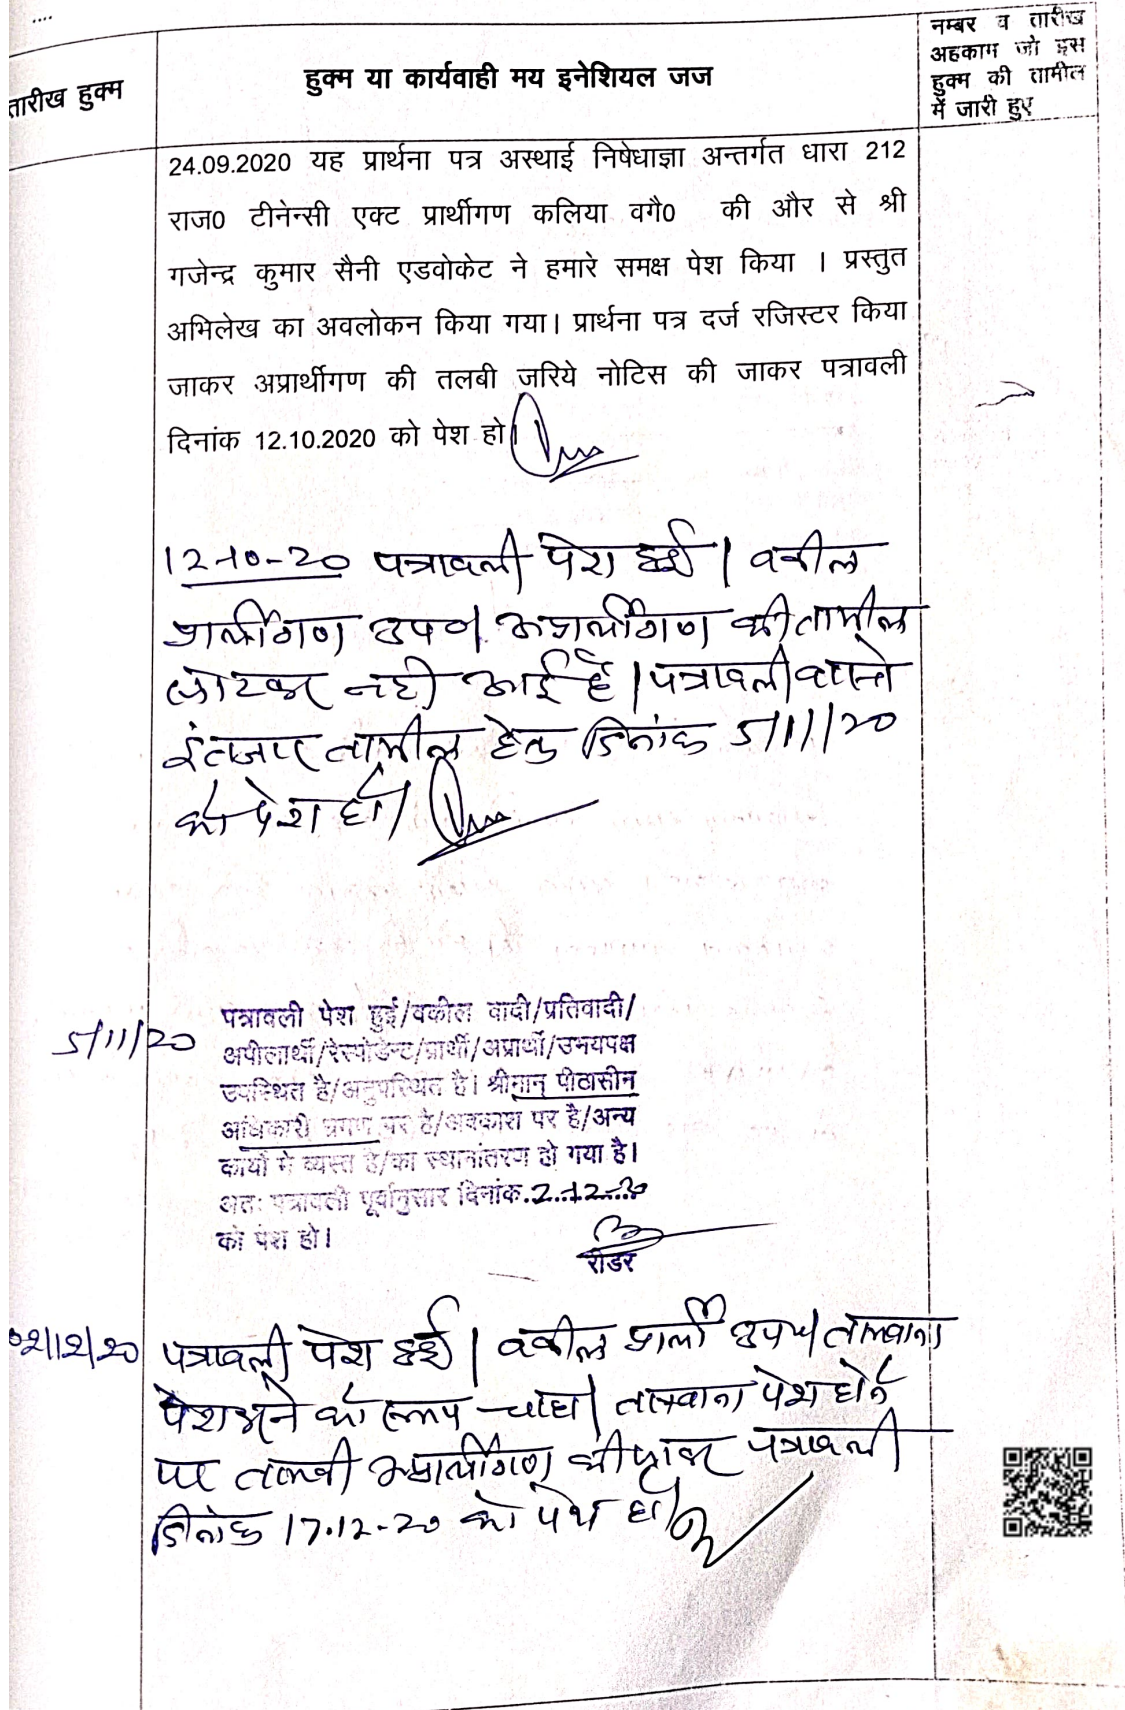 ....
तारीख हुक्म
हुक्म या कार्यवाही मय इनेशियल जज
नम्बर व तारीख
अहकाम जो इस
हुक्म की तामील
में जारी हुए
24.09.2020 यह प्रार्थना पत्र अस्थाई निषेधाज्ञा अन्तर्गत धारा 212
राज0 टीनेन्सी एक्ट प्रार्थीगण कलिया वगै0 की और से श्री
गजेन्द्र कुमार सैनी एडवोकेट ने हमारे समक्ष पेश किया । प्रस्तुत
अभिलेख का अवलोकन किया गया। प्रार्थना पत्र दर्ज रजिस्टर किया
जाकर अप्रार्थीगण की तलबी जरिये नोटिस की जाकर पत्रावली
दिनांक 12.10.2020 को पेश हो।
12-10-20 पत्रावली पेश हुई। वकील
प्रार्थीगण उप०। अप्रार्थीगण की तामील
लोटकर नही आई है। पत्रावली वास्ते
इंतजार तामील हेतु दिनांक 5/11/20
को पेश हो।
5/11/20
पत्रावली पेश हुई/वकील वादी/प्रतिवादी/
अपीलार्थी/रेस्पोडेन्ट/प्रार्थी/अप्रार्थी/उभयपक्ष
उपस्थित है/अनुपस्थित है। श्रीमान् पीठासीन
अधिकारी भ्रमण पर है/अवकाश पर है/अन्य
कार्यो मे व्यस्त है/का स्थानांतरण हो गया है।
अतः पत्रावली पूर्वानुसार दिनांक.2.12.20
को पेश हो।
रीडर
02/12/20 पत्रावली पेश हुई। वकील प्रार्थी उप० तलबाना
पेश करने को समय चाहा। तलबाना पेश होने
पर तलबी अप्रार्थीगण की जाकर पत्रावली
दिनांक 17.12-20 को पेश हो।